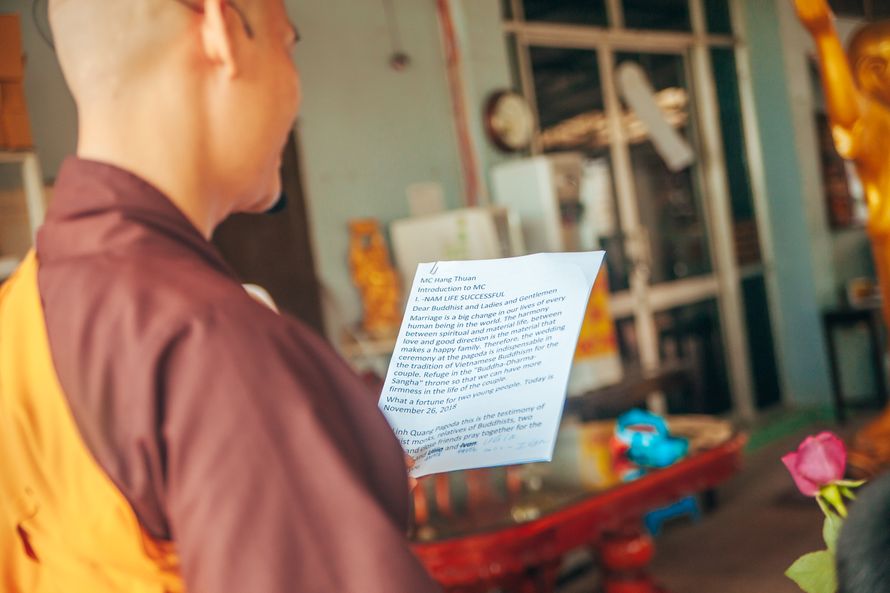 MC Hang Thuan
Introduction to MC
I. -NAM LIFE SUCCESSFUL
Dear Buddhist and Ladies and Gentlemen
Marriage is a big change in our lives of every
human being in the world. The harmony
between spiritual and material life, between
love and good direction is the material that
makes a happy family. Therefore, the wedding
ceremony at the pagoda is indispensable in
the tradition of Vietnamese Buddhism for the
couple. Refuge in the "Buddha-Dharma-
Sangha" throne so that we can have more
firmness in the life of the couple.
What a fortune for two young people. Today is
November 26, 2018
Linh Quang Pagoda this is the testimony of
monks, relatives of Buddhists, two
and close friends pray together for the
and